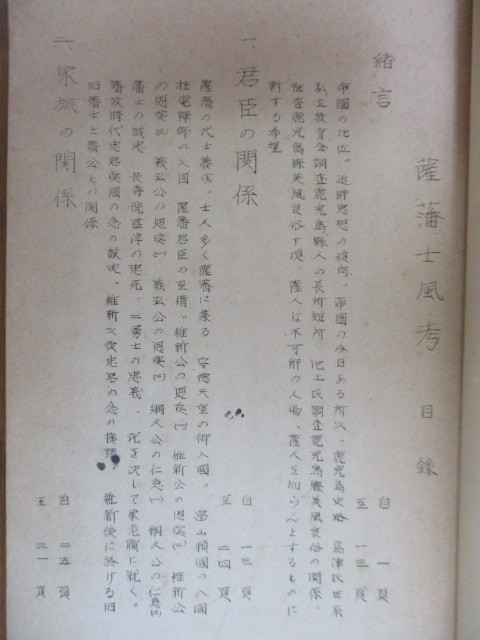 薩藩士風考 目録
緒言
帝国の地位。近時思想の傾向。帝国の今日ある所以。鹿児島史略 島津氏世系
私立教育会調査鹿児島県人の長所短所 池上氏調査鹿児島県美風良俗の関係。
調査鹿児島県美風良俗下項。薩人は不可解の人物、薩人を知らんとするものに
対する希望
自 一頁
至 一三頁
一 君臣の関係
薩藩の武士養成。士人多く薩藩に来る 安徳天皇の御入国。畠山頼国の入国
桂庵禅師の入国 薩藩君臣の至情。維新公の恩愛(一) 維新公の恩愛(二) 維新公
の恩愛(三) 義弘公の恩愛(一) 義弘公の恩愛(二) 綱久公の仁恵(一) 綱久公の仁恵(二)
藩士の誠忠 長寿院盛淳の忠死。二勇士の忠義。死を決して家老職に就く。
藩政時代忠君愛国の念の鼓吹。維新以後忠君の念の 維新後に於ける旧
旧藩士と藩公との関係
自 一三頁
至 二四頁
二 家族の関係
自 二五頁
至 三一頁